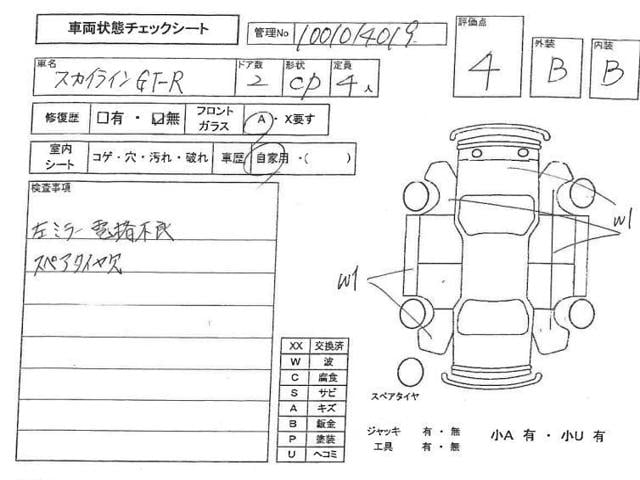 車両状態チェックシート
管理No 1001014019
評価点 4
外装 B
内装 B
車名 スカイラインGT-R
ドア数 2
形状 CP
定員 4人
修復歴 □有・☑無
フロントガラス A・X要す
室内シート コゲ・穴・汚れ・破れ
車歴 自家用・( )
検査事項
左ミラー 電格不良
スペアタイヤ欠
W1
W1
XX 交換済
W 波
C 腐食
S サビ
A キズ
B 鈑金
P 塗装
U ヘコミ
スペアタイヤ
ジャッキ 有・無
工具 有・無
小A 有・小U 有